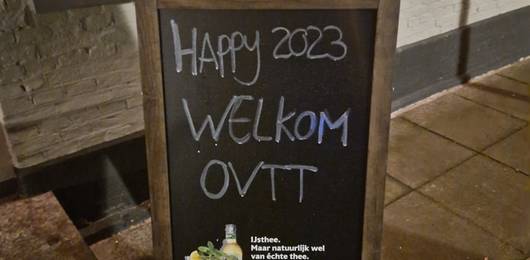 HAPPY 2023
WELKOM
OVTT
IJsthee.
Maar natuurlijk wel
van échte thee.